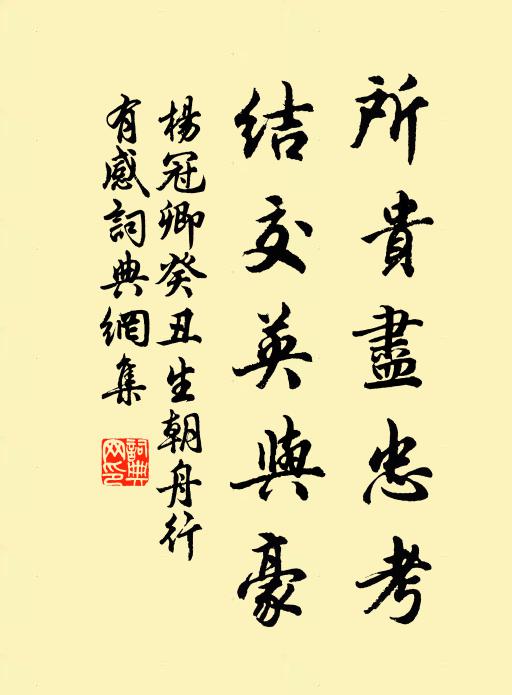 所貴盡忠考
結交英與豪
楊冠卿癸丑生朝舟行
有感詞典網集
詞典
网印